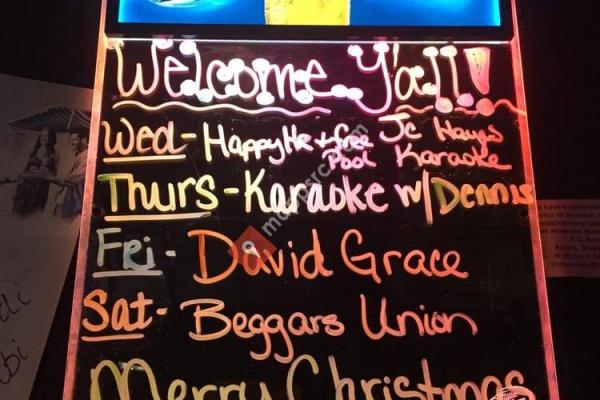 Welcome Y'all!
Wed- Happy Hr + free Pool Jc Hayes Karaoke
Thurs - Karaoke w/ Dennis
Fri - David Grace
Sat - Beggars Union
Merry Christmas